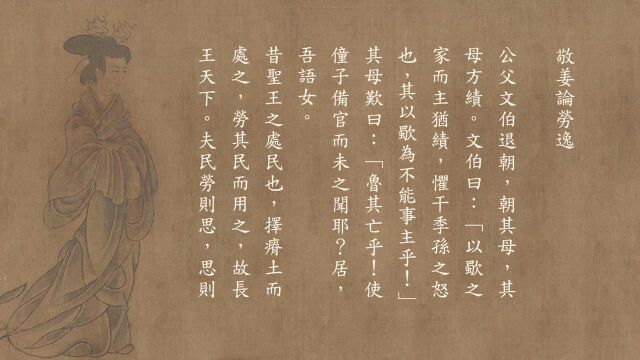 敬姜論勞逸
公父文伯退朝，朝其母，其
母方績。文伯曰：「以歜之
家而主猶績，懼干季孫之怒
也，其以歜為不能事主乎！」
其母歎曰：「魯其亡乎！使
僮子備官而未之聞耶？居，
吾語女。
昔聖王之處民也，擇瘠土而
處之，勞其民而用之，故長
王天下。夫民勞則思，思則